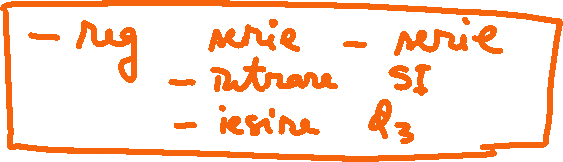 - reg serie - serie
- intrare SI
- iesire Q3